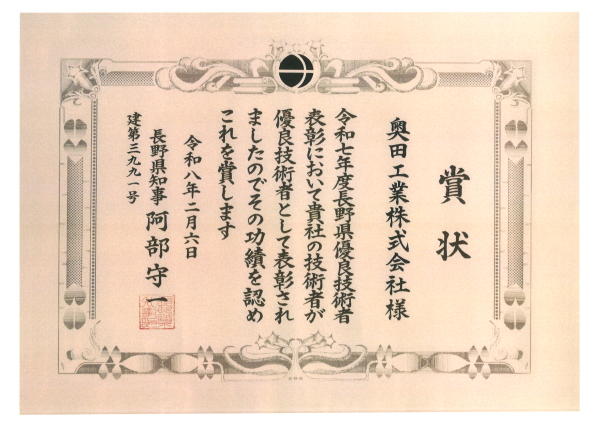 賞状
奥田工業株式会社様
令和七年度長野県優良技術者
表彰において貴社の技術者が
優良技術者として表彰され
ましたのでその功績を認め
これを賞します
令和八年二月六日
長野県知事 阿部守一
建第三九九一号